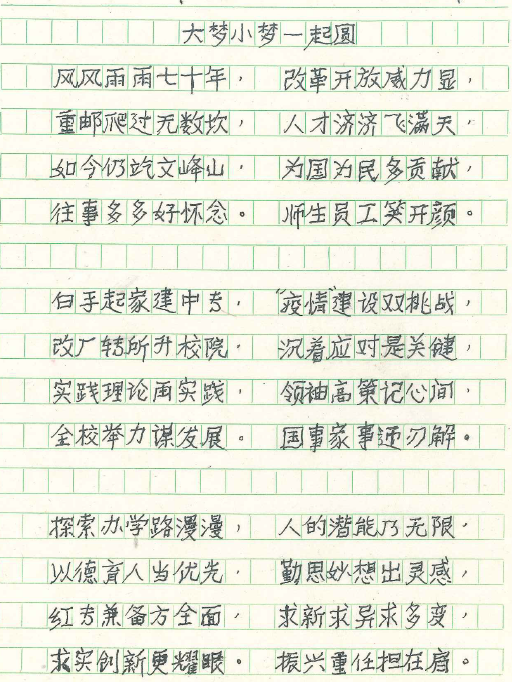 大梦小梦一起圆
风风雨雨七十年， 改革开放威力显，
重邮爬过无数坎， 人才济济飞满天，
如今仍屹文峰山， 为国为民多贡献，
往事多多好怀念。 师生员工笑开颜。
白手起家建中专， “疫情”建设双挑战，
改厂转所升校院， 沉着应对是关键，
实践理论再实践， 领袖高策记心间，
全校举力谋发展。 国事家事迎刃解。
探索办学路漫漫， 人的潜能乃无限，
以德育人当优先， 勤思妙想出灵感，
红专兼备方全面， 求新求异求多变，
求实创新更耀眼。 振兴重任担在肩。